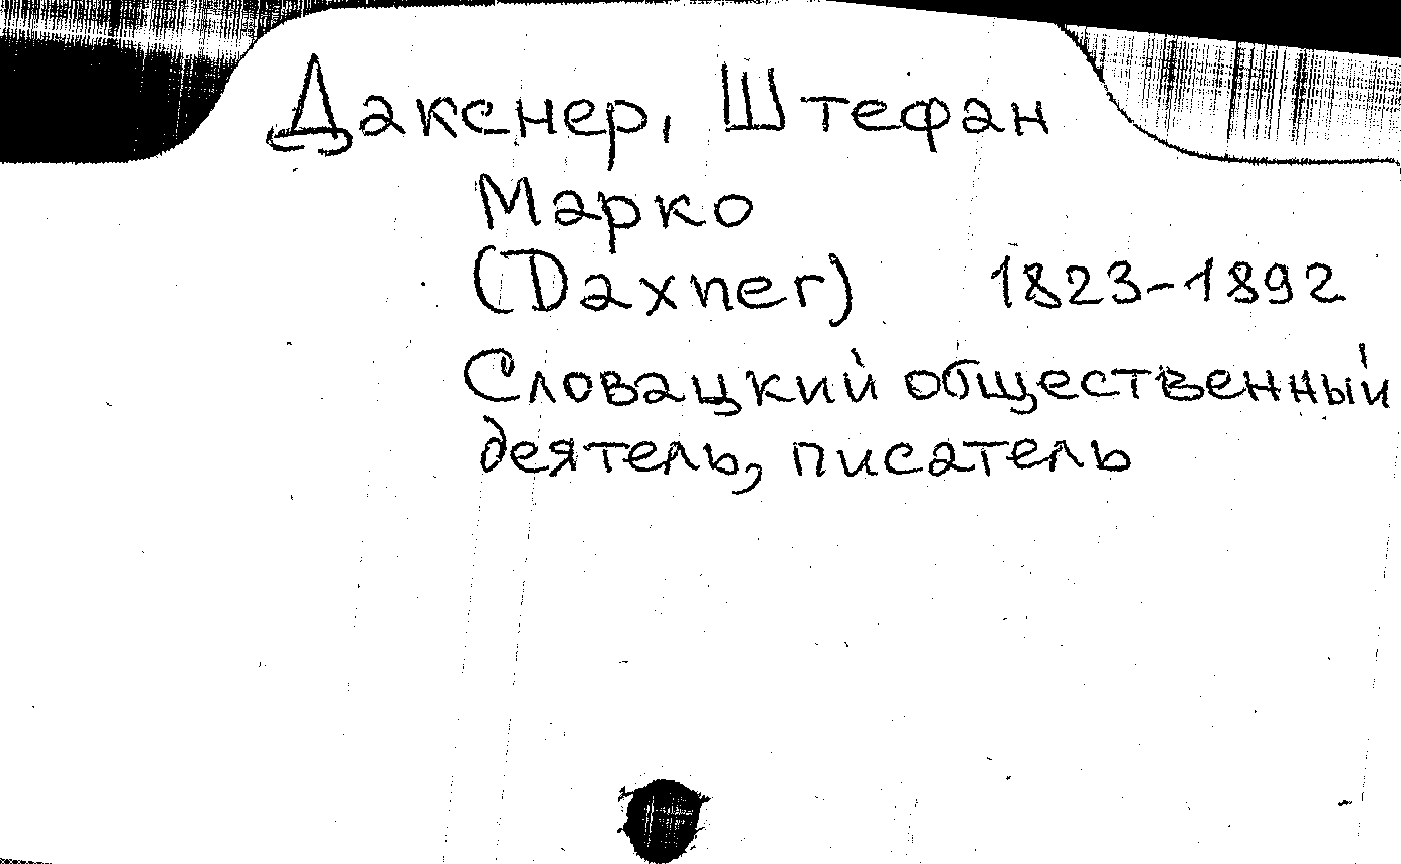 Дакснер, Штефан
Марко
(Daxner) 1823-1892
Словацкий общественный
деятель, писатель